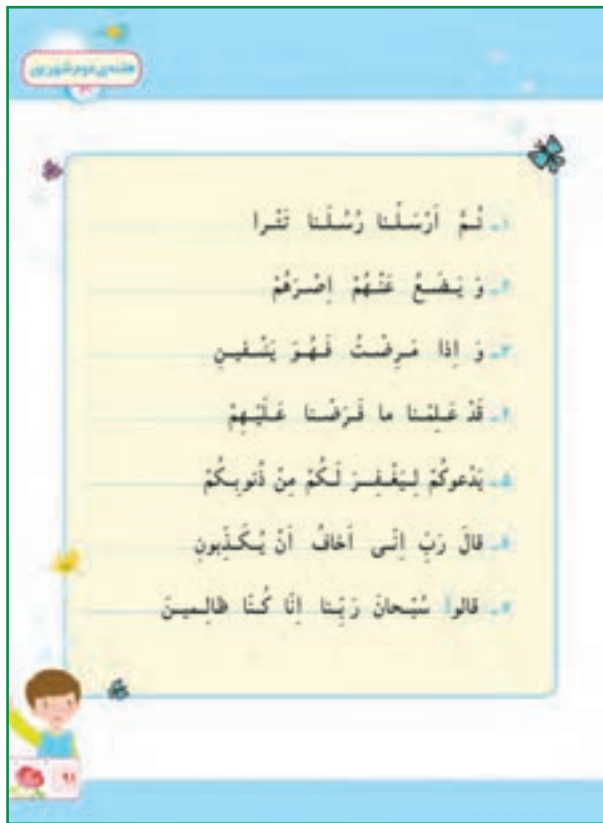 هفته‌ی دوم شهریور
۱ـ ثُمَّ اَرْسَلْنا رُسُلَنا تَتْرا
۲ـ وَ یَضَعُ عَنْهُمْ اِصْرَهُمْ
۳ـ وَ اِذا مَرِضْتُ فَهُوَ یَشْفینِ
۴ـ قَدْ عَلِمْنا ما فَرَضْنا عَلَیْهِمْ
۵ـ یَدْعوکُمْ لِیَغْفِرَ لَکُمْ مِنْ ذُنوبِکُمْ
۶ـ قالَ رَبِّ اِنّی اَخافُ اَنْ یُکَذِّبونِ
۷ـ قالوا سُبْحانَ رَبِّنا اِنّا کُنّا ظالِمینَ
۹۱